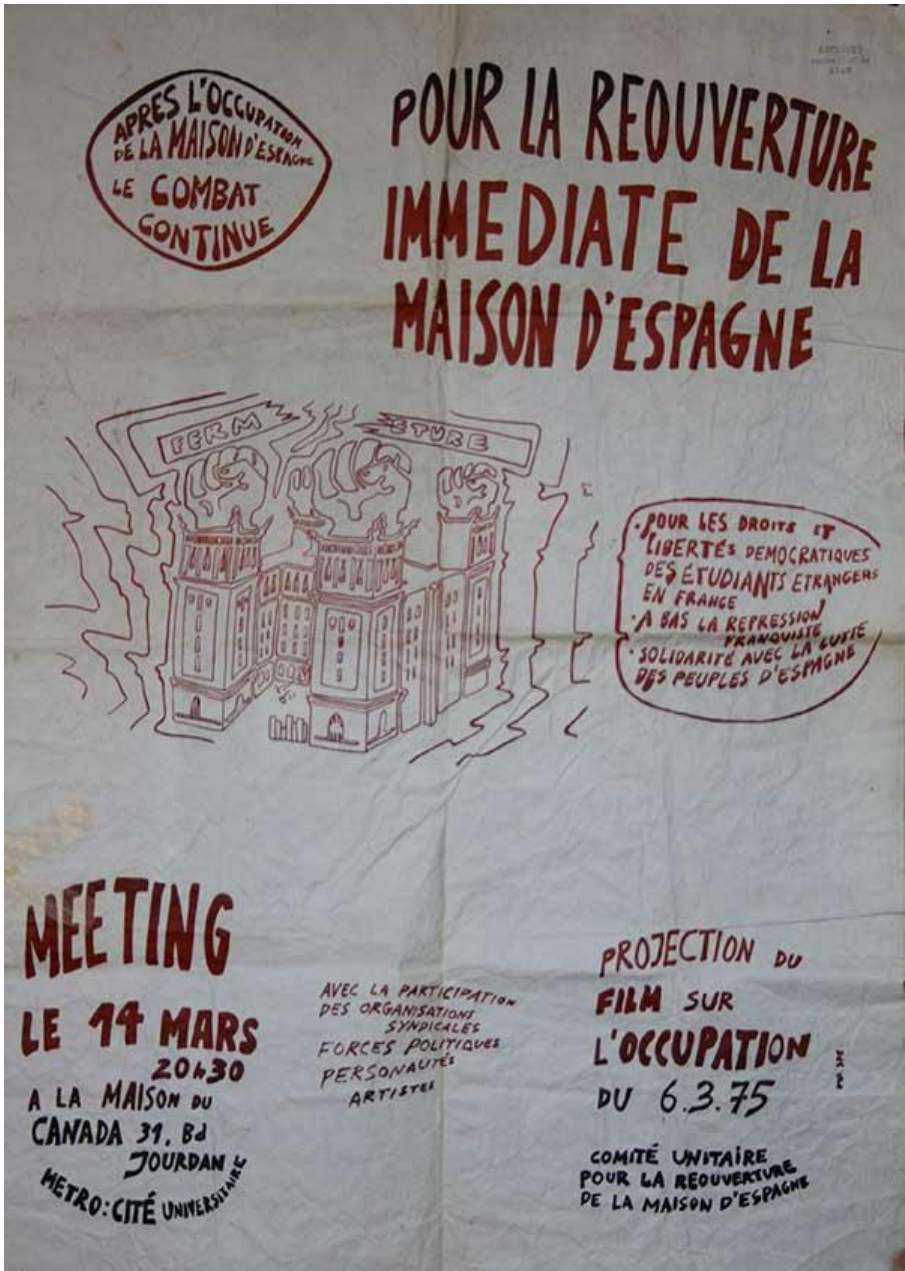 APRES L'OCCUPATION
DE LA MAISON D'ESPAGNE
LE COMBAT
CONTINUE
POUR LA REOUVERTURE
IMMEDIATE DE LA
MAISON D'ESPAGNE
FERM
ETURE
• POUR LES DROITS ET
LIBERTÉS DEMOCRATIQUES
DES ÉTUDIANTS ETRANGERS
EN FRANCE
• A BAS LA REPRESSION
FRANQUISTE
• SOLIDARITÉ AVEC LA LUTTE
DES PEUPLES D'ESPAGNE
MEETING
LE 14 MARS
20h30
A LA MAISON DU
CANADA 31, Bd
JOURDAN
METRO: CITÉ UNIVERSITAIRE
AVEC LA PARTICIPATION
DES ORGANISATIONS
SYNDICALES
FORCES POLITIQUES
PERSONALITÉS
ARTISTES
PROJECTION DU
FILM SUR
L'OCCUPATION
DU 6.3.75
COMITÉ UNITAIRE
POUR LA REOUVERTURE
DE LA MAISON D'ESPAGNE